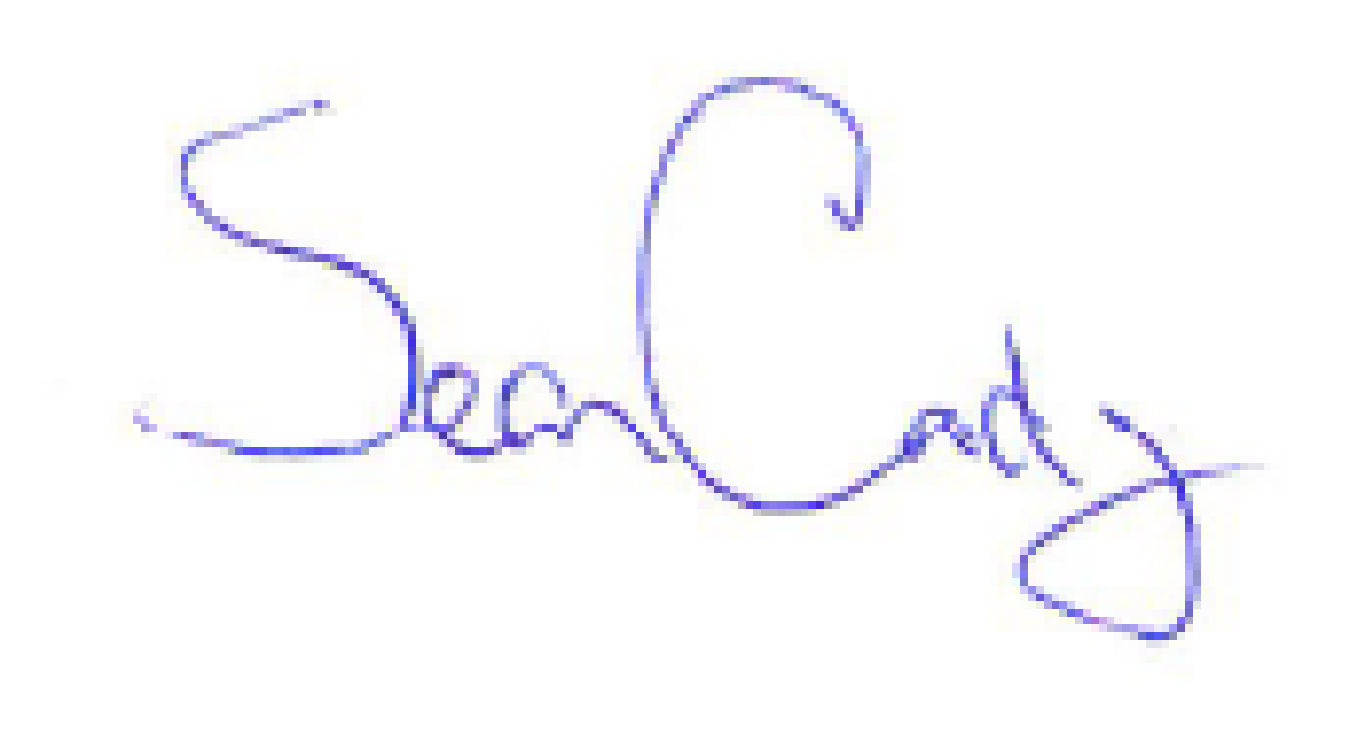 Sean Cady